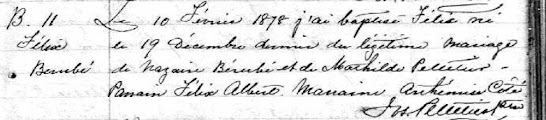 B. 11
Félix
Berubé
Le 10 Février 1878 j'ai baptisé Félix né
le 19 Décembre dernier du légitime mariage
de Nazaire Bérubé et de Mathilde Pelletier
Parrain Félix Albert Marraine Arthémise Côté
Jos. Pelletier Ptre